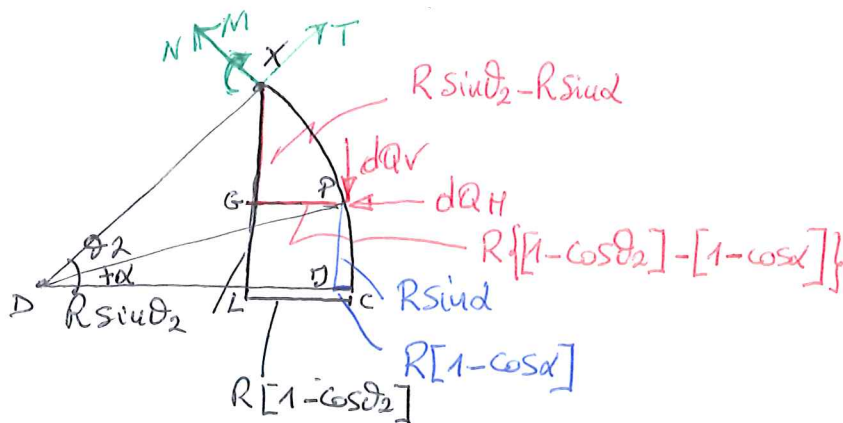 N M T
X
R sinϑ₂-R sinα
dQV
G P
dQH
ϑ2
R{[1-cosϑ₂]-[1-cosα]}
+α
D L J C
R sinϑ₂
R sinα
R[1-cosα]
R[1-cosϑ₂]